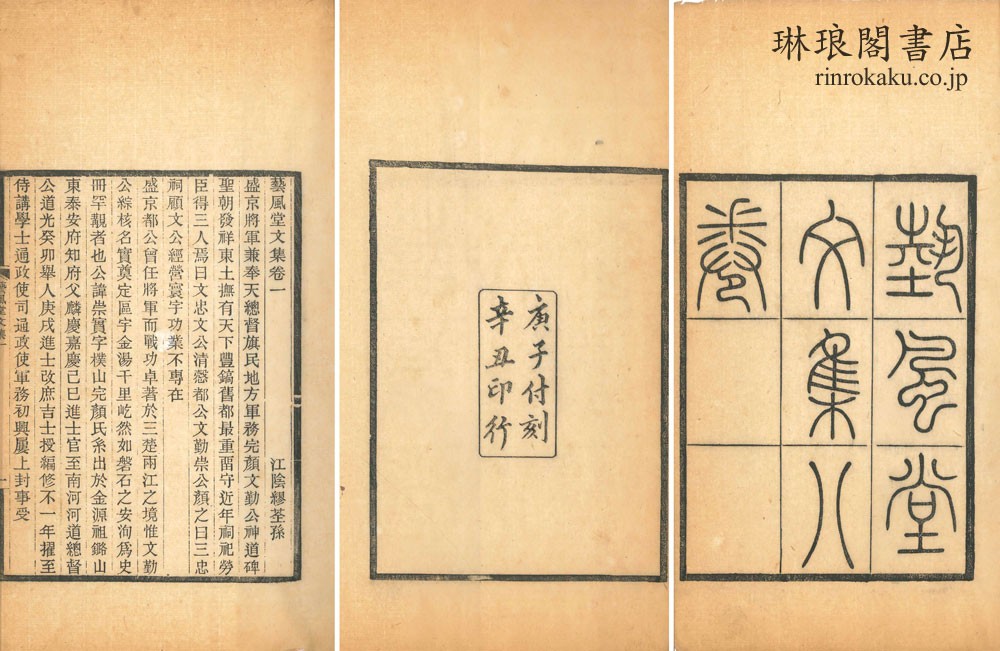 琳琅閣書店
rinrokaku.co.jp
藝風堂
文集八
卷
庚子付刻
辛丑印行
藝風堂文集卷一
江陰繆荃孫
盛京將軍兼奉天總督旗民地方軍務完顏文勤公神道碑
聖朝發祥東土撫有天下豐鎬舊都最重畱守近年祠祀勞
臣得三人焉曰文忠文公清愨都公文勤崇公顏之曰三忠
祠顧文公經營寰宇功業不專在
盛京都公曾任將軍而戰功卓著於三楚兩江之境惟文勤
公綜核名實奠定區宇金湯千里屹然如磐石之安洵爲史
冊罕覯者也公諱崇實字樸山完顏氏系出於金源祖鏴山
東泰安府知府父麟慶嘉慶己巳進士官至南河河道總督
公道光癸卯舉人庚戌進士改庶吉士授編修不一年擢至
侍講學士通政使司通政使軍務初興屢上封事受
藝風堂文集一
一